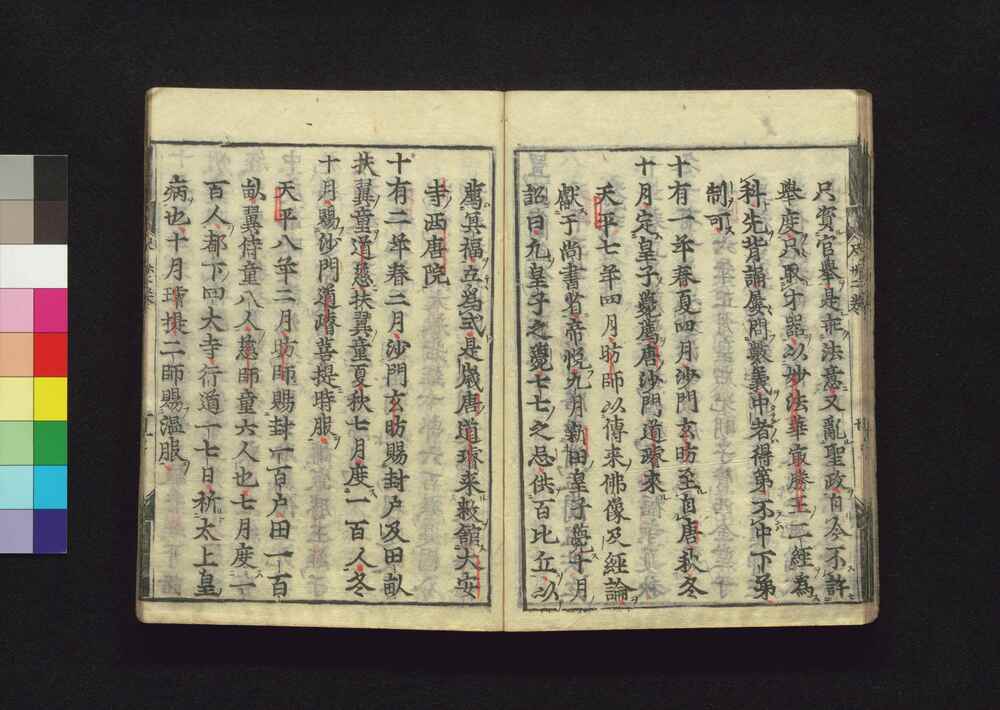 只資官舉是乖法意又亂聖政自今不許
舉度只取才器以妙法華最勝王二經為
科先背誦屡問數義中者得第不中下第
制可
十有一年春夏四月沙門玄昉至自唐秋冬
十月定皇子薨薦唐沙門道璿來
天平七年四月昉師以傳來佛像及經論
獻于尚書省帝悅九月新田皇子薨十月
詔曰九皇子之薨七七之忌供百比丘以
薦冥福立為式是歲唐道璿來敕館大安
寺西唐院
十有二年春二月沙門玄昉賜封户及田畝
扶翼童道慈扶翼童夏秋七月度一百人冬
十月賜沙門道璿菩提時服
天平八年二月昉師賜封一百户田一百
畝翼侍童八人慈師童六人也七月度一
百人都下四大寺行道一七日祈太上皇
病也十月璿提二師賜溫服